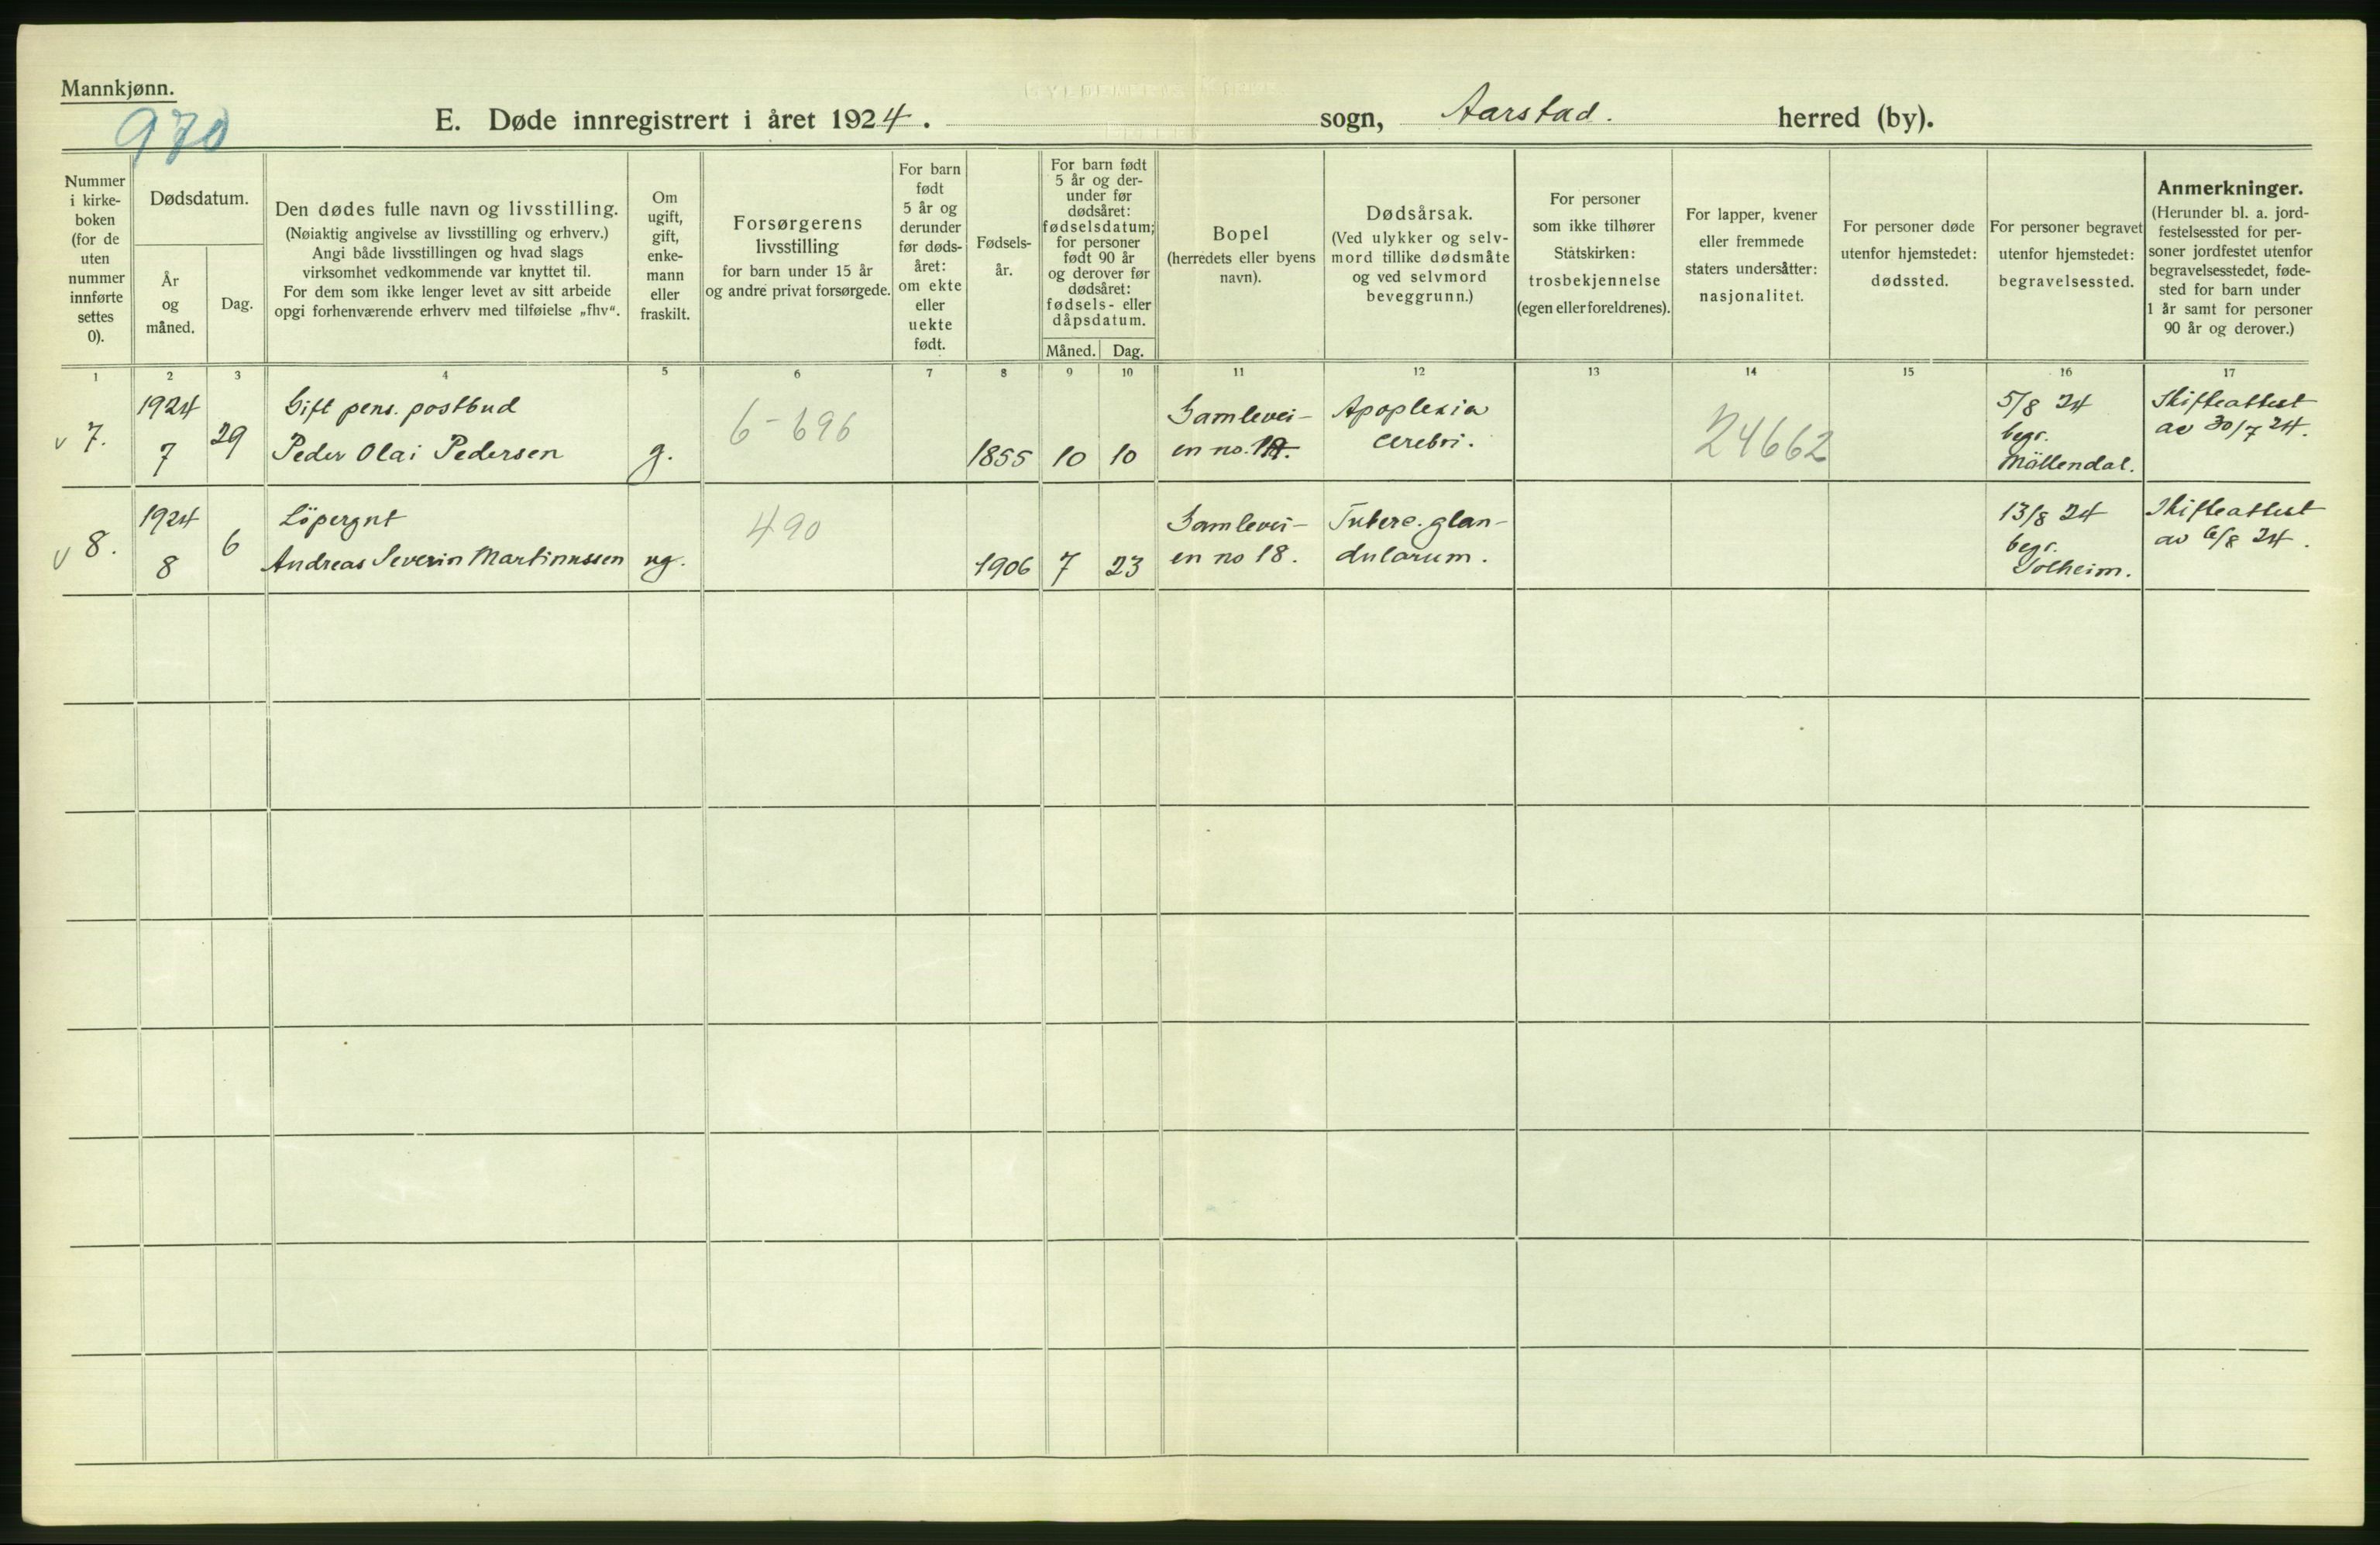 Mannkjønn.
970
E. Døde innregistrert i året 1924. sogn, Aarstad. herred (by).
Nummer
i kirke-
boken
(for de
uten
nummer
innførte
settes
0).
Dødsdatum.
År
og
måned.
Dag.
Den dødes fulle navn og livsstilling.
(Nøiaktig angivelse av livsstilling og erhverv.)
Angi både livsstillingen og hvad slags
virksomhet vedkommende var knyttet til.
For dem som ikke lenger levet av sitt arbeide
opgi forhenværende erhverv med tilføielse „fhv".
Om
ugift,
gift,
enke-
mann
eller
fraskilt.
Forsørgerens
livsstilling
for barn under 15 år
og andre privat forsørgede.
For barn
født
5 år og
derunder
før døds-
året:
om ekte
eller
uekte
født.
Fødsels-
år.
For barn født
5 år og der-
under før
dødsåret:
fødselsdatum;
for personer
født 90 år
og derover før
dødsåret:
fødsels- eller
dåpsdatum.
Måned. Dag.
Bopel
(herredets eller byens
navn).
Dødsårsak.
(Ved ulykker og selv-
mord tillike dødsmåte
og ved selvmord
beveggrunn.)
For personer
som ikke tilhører
Statskirken:
trosbekjennelse
(egen eller foreldrenes).
For lapper, kvener
eller fremmede
staters undersåtter:
nasjonalitet.
For personer døde
utenfor hjemstedet:
dødssted.
For personer begravet
utenfor hjemstedet:
begravelsessted.
Anmerkninger.
(Herunder bl. a. jord-
festelsessted for per-
soner jordfestet utenfor
begravelsesstedet, føde-
sted for barn under
1 år samt for personer
90 år og derover.)
1 2 3 4 5 6 7 8 9 10 11 12 13 14 15 16 17
v 7.
1924
7
29
Gift pens. postbud
Peder Olai Pedersen
g.
6-696
1855
10
10
Gamlevei-
en no.
Apoplexia
cerebri.
24662
5/8 24
begr.
Möllendal.
Skifteattest
av 30/7 24.
v 8.
1924
8
6
Löpergut
Andreas Severin Martinussen
ug.
490
1906
7
23
Gamlevei-
en no 18.
Tuberc. glan-
dularum.
13/8 24
begr.
Solheim.
Skifteattest
av 6/8 24.